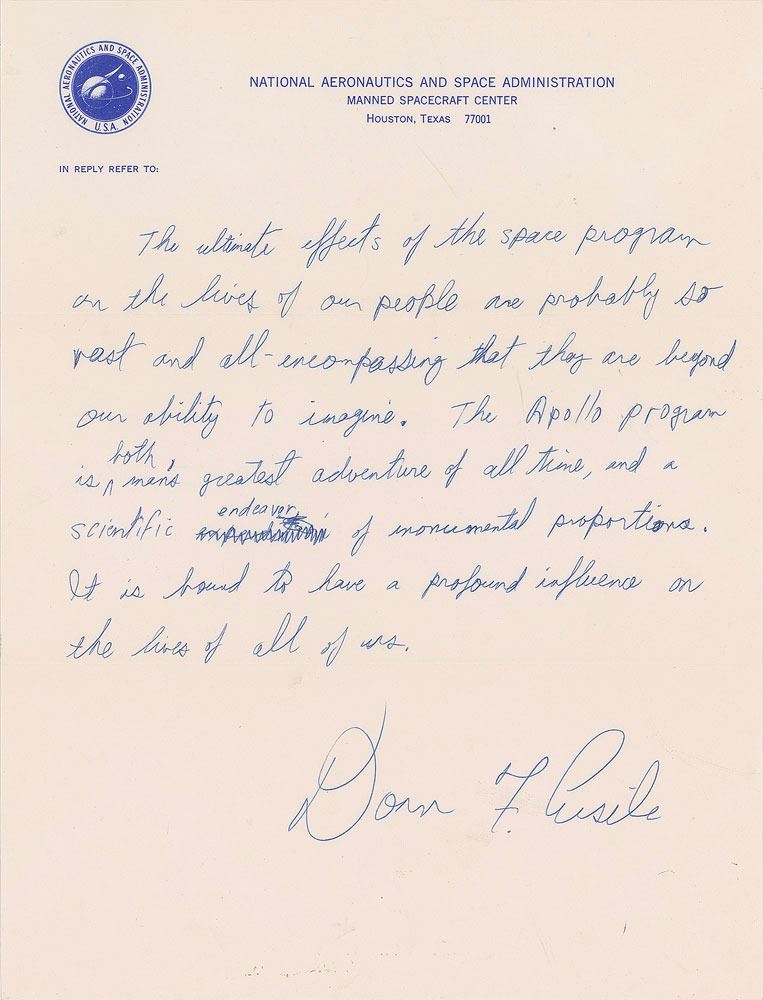 NATIONAL AERONAUTICS AND SPACE ADMINISTRATION U.S.A.
NATIONAL AERONAUTICS AND SPACE ADMINISTRATION
MANNED SPACECRAFT CENTER
HOUSTON, TEXAS 77001
IN REPLY REFER TO:
The ultimate effects of the space program
on the lives of our people are probably so
vast and all-encompassing that they are beyond
our ability to imagine. The Apollo program
is both man's greatest adventure of all time, and a
scientific endeavor of monumental proportions.
It is bound to have a profound influence on
the lives of all of us.
Donn F. Eisele